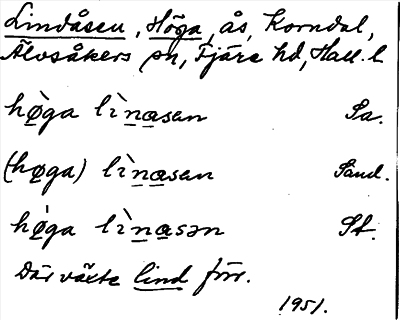 Lindåsen, Höga, ås, Korndal,
Älvsåkers sn, Fjäre hd, Hall. l
hø̀ga lìnasan Sa.
(høga) lìnasan Sand.
hø̀ga lìnasən St.
Där växte lind förr.
1951.